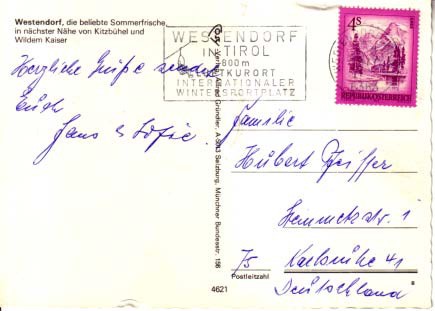 Westendorf, die beliebte Sommerfrische
in nächster Nähe von Kitzbühel und
Wildem Kaiser
Herzliche Grüße senden
Euch
Hans & Sofie.
WESTENDORF
IN TIROL
800m
LUFTKURORT
INTERNATIONALER
WINTERSPORTPLATZ
4S
REPUBLIK ÖSTERREICH
Verlag Alfred Gründler, A-5013 Salzburg, Münchner Bundesstr. 156
Familie
Hubert Pfeiffer
1
75 Karlsruhe 41
Postleitzahl
Deutschland
4621